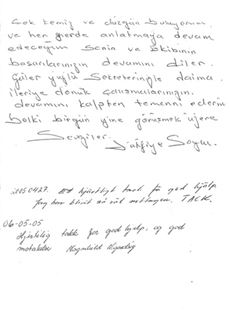 Çok temiz ve düzgün buluyorum,
ve her yerde anlatmaya devam
edeceğim Senin ve Ekibinin
başarılarınızın devamını diler.
Güler yüzlü Sekreterinizle daima
ileriye dönük çalışmalarınızın
devamını kalpten temenni ederim
belki birgün yine görüşmek üzere
Sevgiler
hjärtligt tack för god hjälp
Jag har blivit så väl mottagen. TACK.
06-05-05
Hjärtelig takk for god hjelp, og god